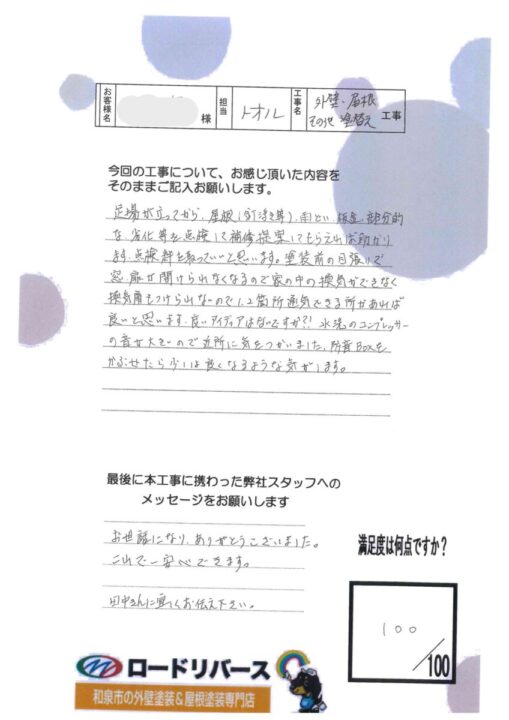 お客様名 様 担当 トオル 工事名 外壁・屋根 その他 塗替え 工事
今回の工事について、お感じ頂いた内容を
そのままご記入お願いします。
足場が立ってから、屋根(釘浮き等)、雨とい、板金、部分的
な劣化等を点検して補修提案してもらえれば助かり
ます。点検料を取っていいと思います。塗装前の目張りで
窓、扉が開けられなくなるので家の中の換気ができなく
換気扇もつけられないので1、2箇所通気できる所があれば
良いと思います。良いアイディアはないですか?! 水洗のコンプレッサー
の音が大きいので近所に気をつかいました。防音Boxを
かぶせたら少しは良くなるような気がします。
最後に本工事に携わった弊社スタッフへの
メッセージをお願いします
お世話になり、ありがとうございました。
これで一安心できます。
田中さんに宜しくお伝え下さい。
満足度は何点ですか?
100
/100
ロードリバース
和泉市の外壁塗装&屋根塗装専門店